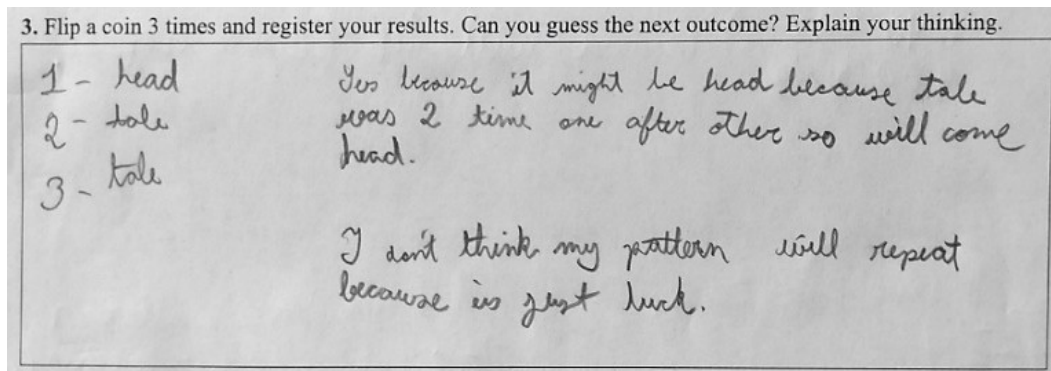 3. Flip a coin 3 times and register your results. Can you guess the next outcome? Explain your thinking.
1 - head
2 - tale
3 - tale
Yes because it might be head because tale
was 2 time one after other so will come
head.
I don't think my pattern will repeat
because is just luck.